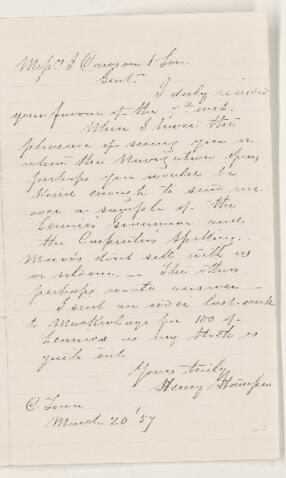 Messrs J Campbell & Son
Gentn
I duly received
your favour of the inst.
When I have the
pleasure of seeing you or
when the Navigation opens
perhaps you would be
kind enough to send me
over a sample of the
Lennie's Grammar and
the Carpenters Spelling.
don't sell with us
or seldom. — The others
perhaps would answer —
I sent an order last week
to for 100 of
Lennies as my stock is
quite out
Yours truly
Henry
C. Town
March 20 '57